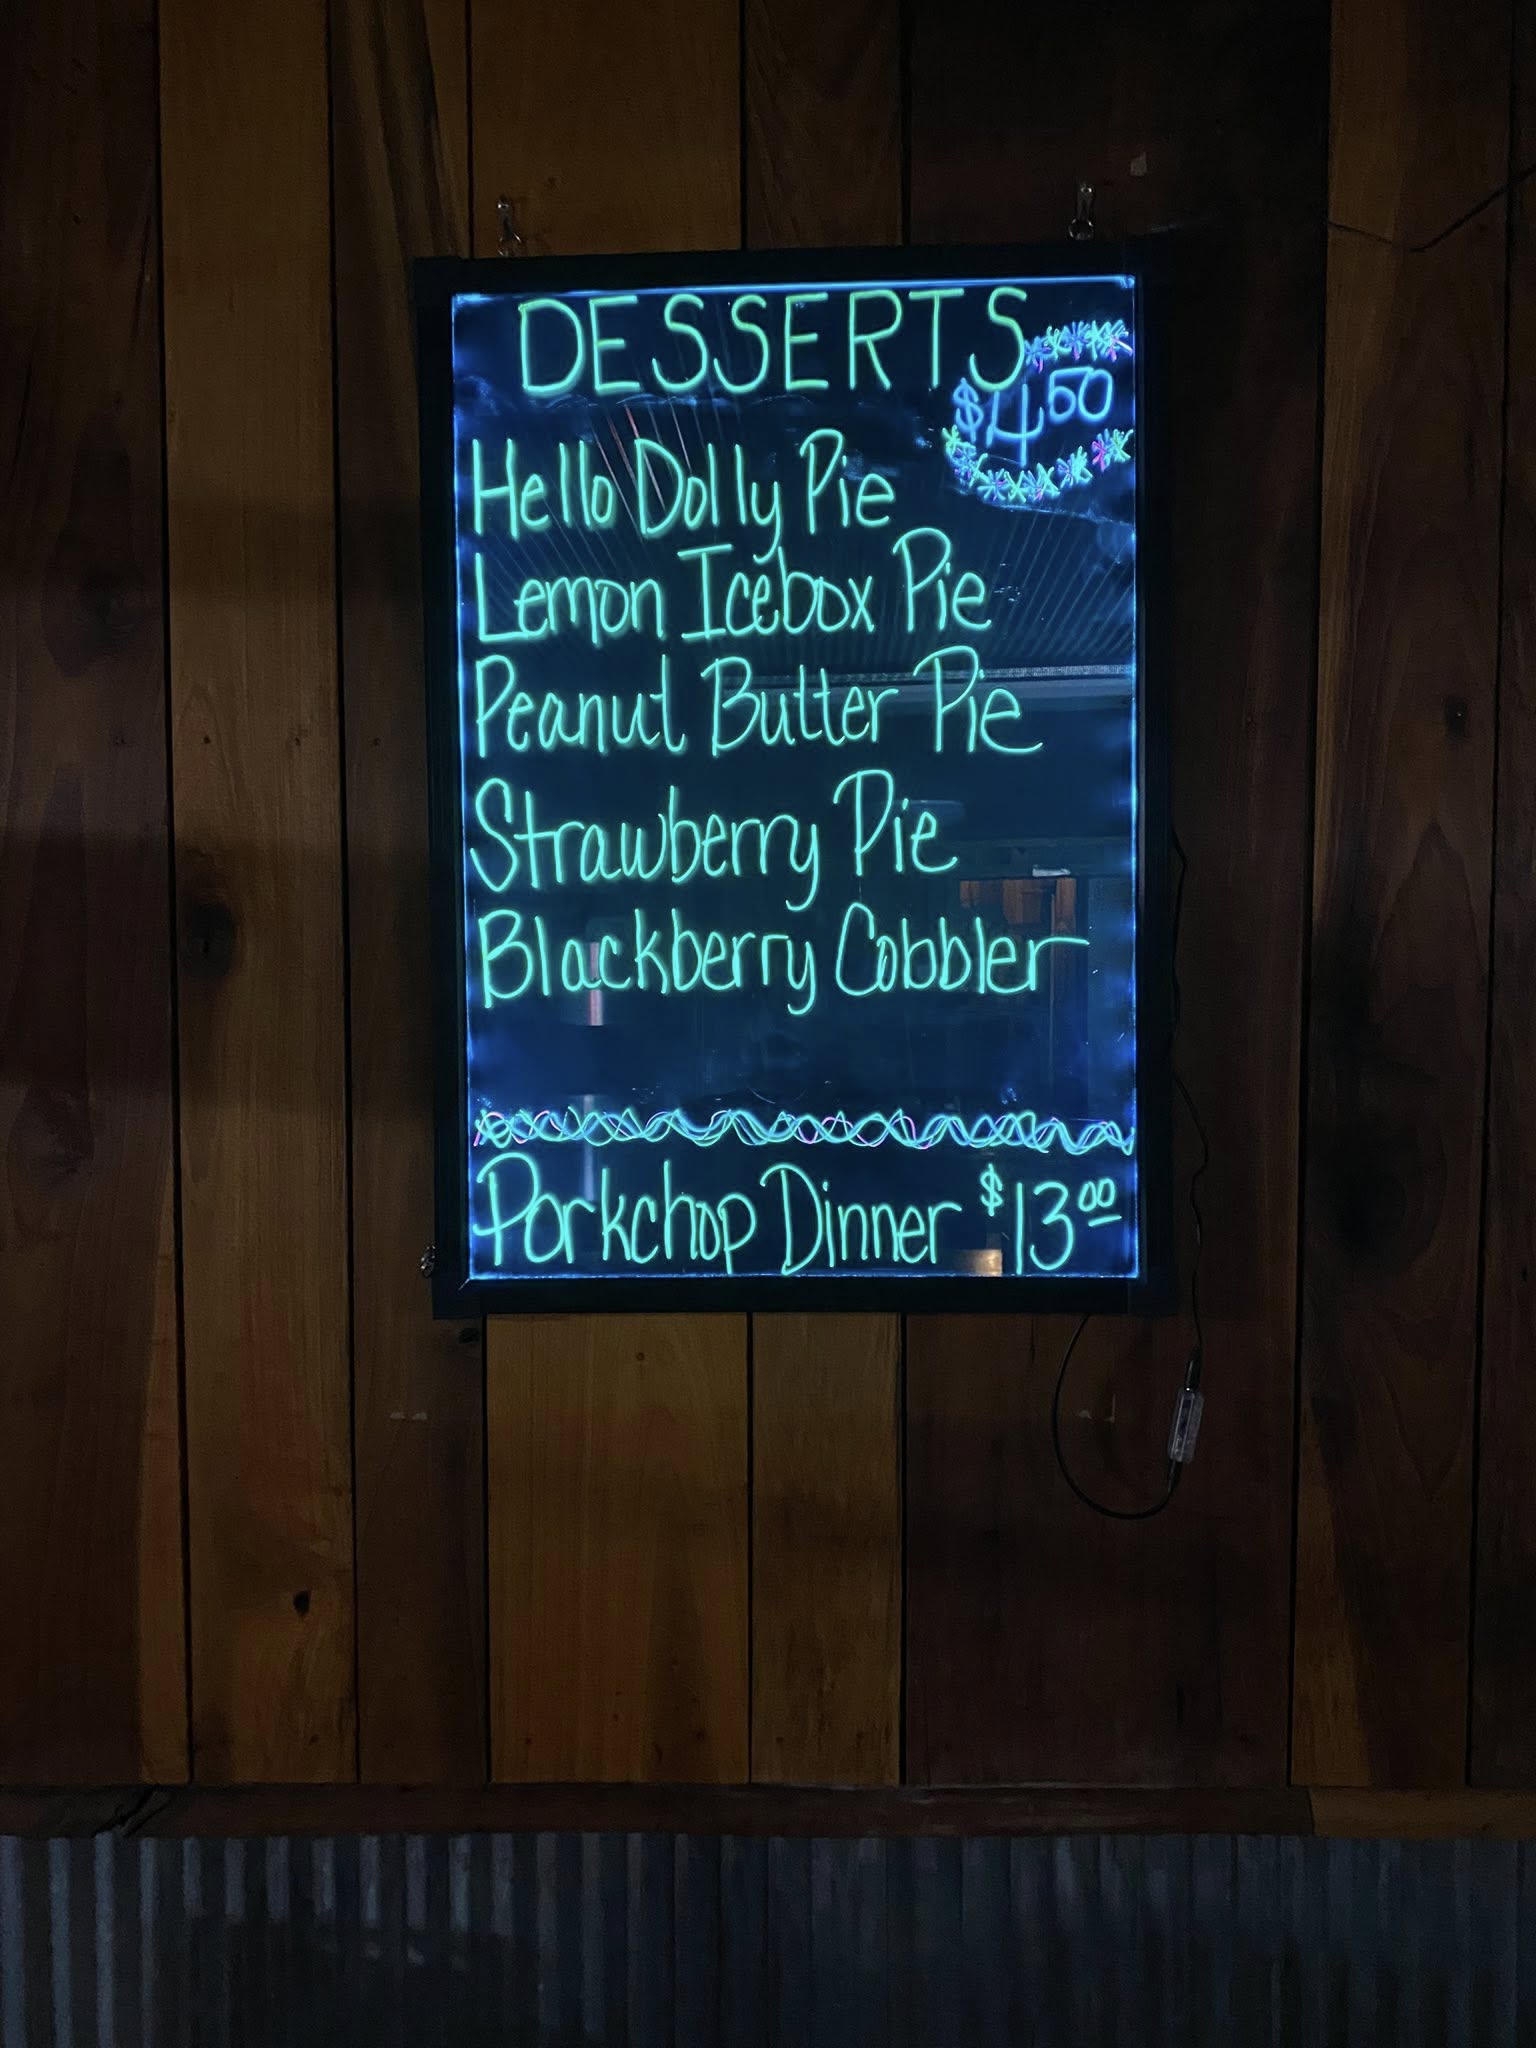 DESSERTS
$4.50
Hello Dolly Pie
Lemon Icebox Pie
Peanut Butter Pie
Strawberry Pie
Blackberry Cobbler
Porkchop Dinner $13.00